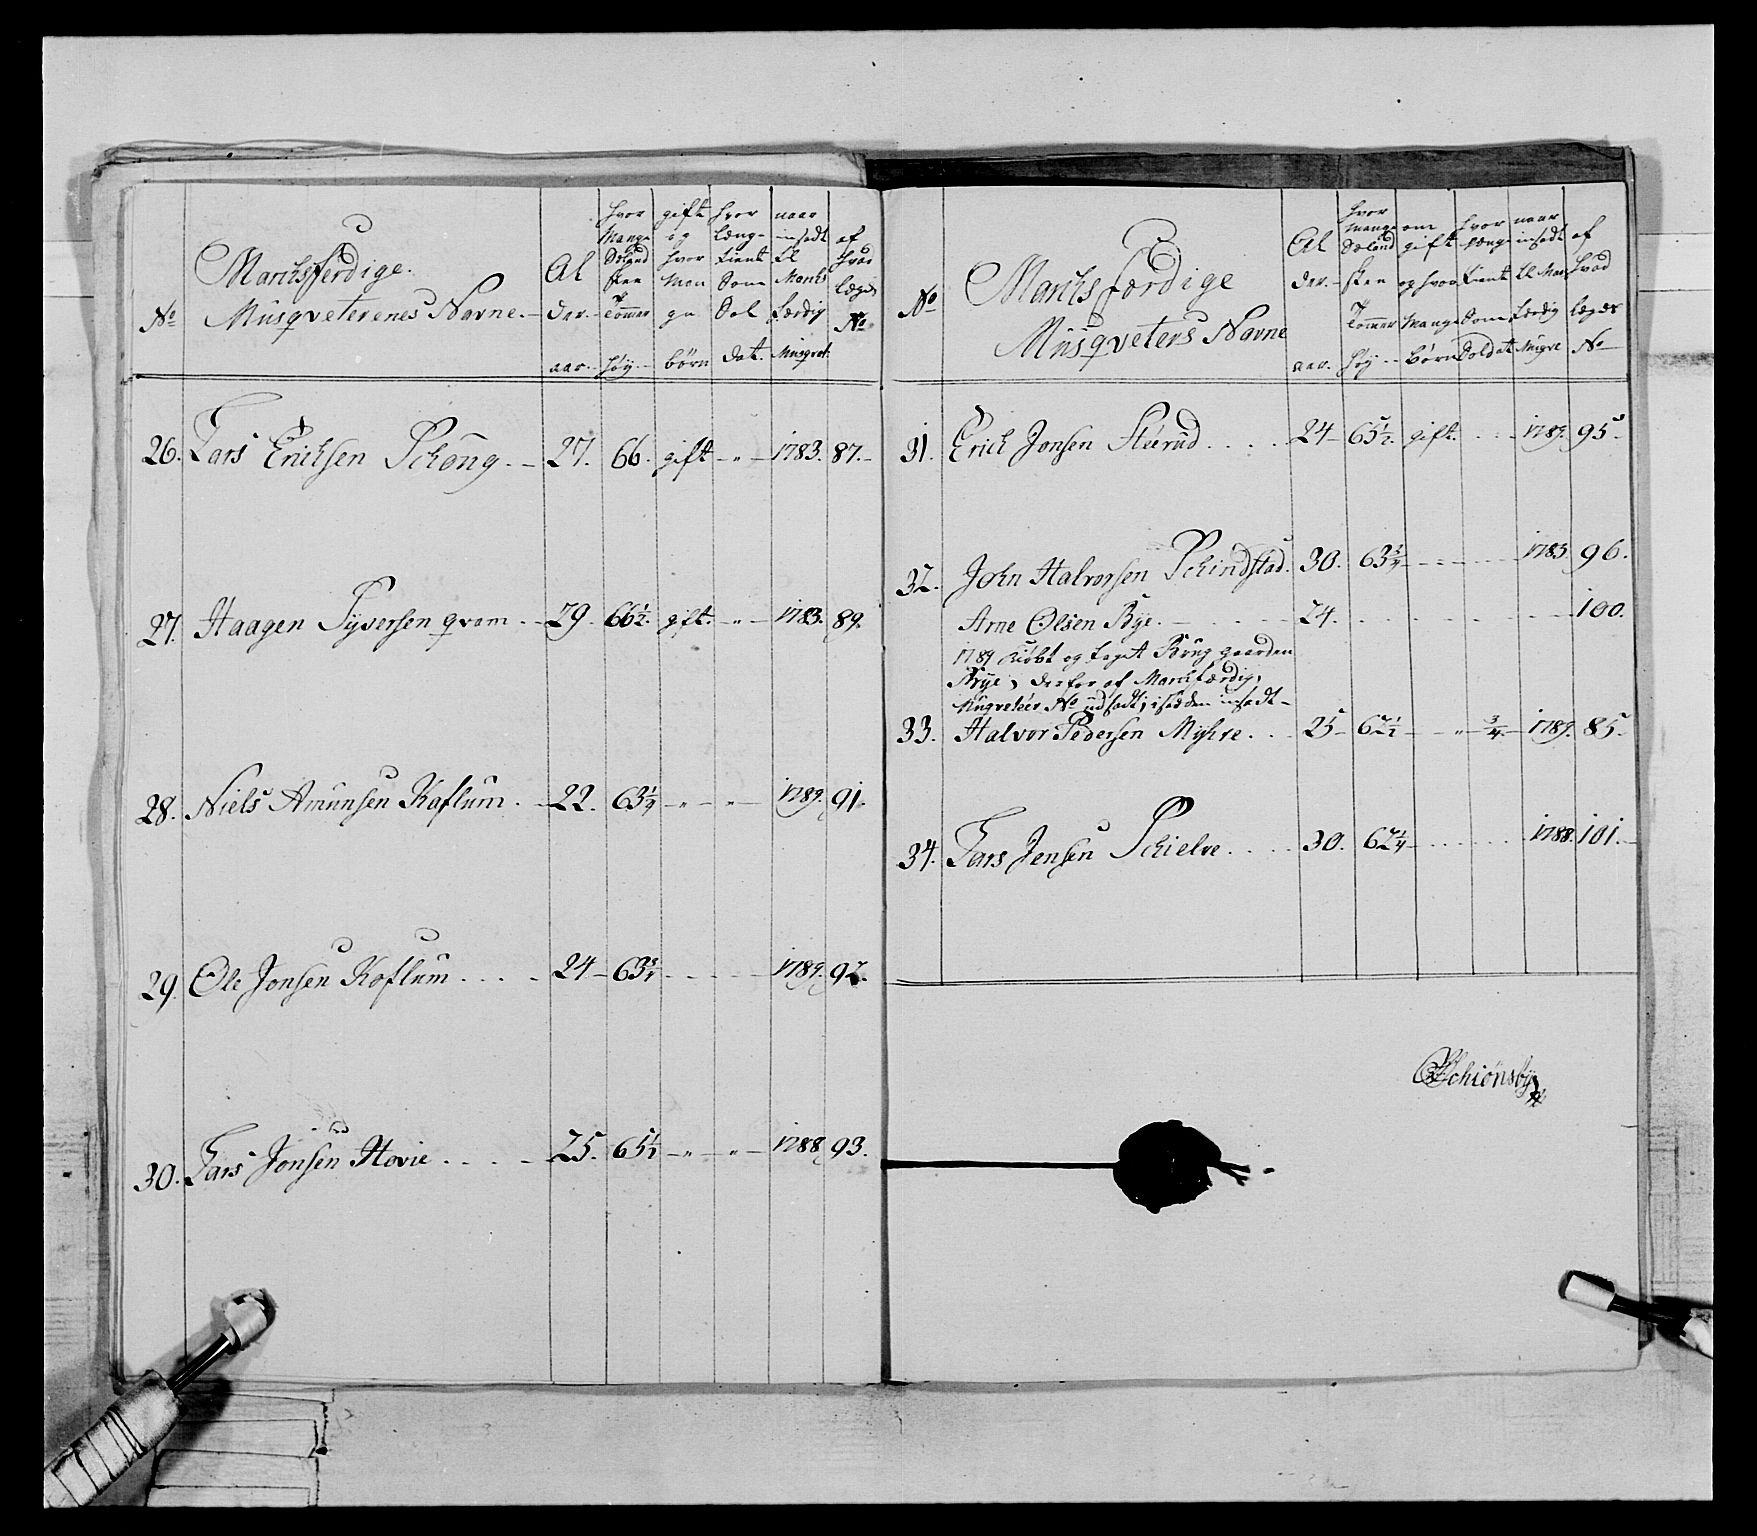 No
Marchsferdige.
Musqveterenes Navne.
Al
der.
aar.
hvor
Mange
Sælend
sken
Tommer
høy
gifte
og
hvor
Man
ge
børn
hvor
læng-
tient
Som
Sol
dat.
naar
insadt
til
Marchs
færdig
Musqvet:
af
hvad
lægd
No
26. Lars Erichsen Schong. 27. 66. gift " 1783. 87.
27. Haagen Syversen qvam 29. 66½. gift. " 1783. 89.
28. Niels Amunsen Kaflum. 22. 63¼ " " 1789. 91.
29. Ole Jonsen Koflum 24 63¾ 1789. 92.
30. Lars Jonsen Hovie 25. 65½ " " 1788 93.
No
Marchsfærdige
Musqveters Navne
Al
der.
aar.
hvor
mange
Sælend
sken
Tommer
høy
om
gift
og hvor
Mange
børn
hvor
længe
tient
Som
Soldat
naar
insadt
til Mar
færdig
Musqve
af
hvad
lægds
No
31. Erich Jonsen Sterud 24 65½. gift. 1789. 95.
32. John Halvorsen Schindstad. 30. 63¾ 1783. 96.
Arne Olsen Rye. 24. 100.
1789 kiøbt og taget Brug gaarden
Rye, derfor af Marchfærdig,
Musqveteer No udsadt; isteden insadt
33. Halvor Pedersen Myhre 25 62½ " ¾ 1789. 85.
34. Lars Jensen Schielve 30. 62¼ 1788. 101.
Schiønsby